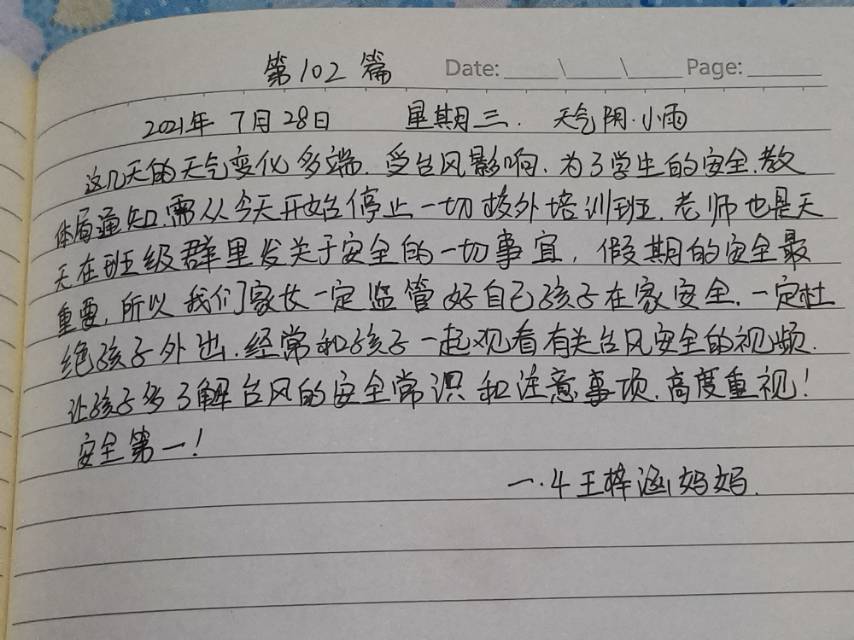 第102篇 Date: ____\____\____ Page: ____
2021年 7月28日 星期三. 天气阴·小雨
这几天的天气变化多端.受台风影响.为了学生的安全.教
体局通知.需从今天开始台停止一切校外培训班.老师也是天
天在班级群里发关于安全的一切事宜,假期的安全最
重要,所以我们家长一定监管好自己孩子在家安全.一定杜
绝孩子外出.经常和孩子一起观看有关台风安全的视频.
让孩子多了解台风的安全常识和注意事项.高度重视!
安全第一!
一.4王梓涵妈妈.